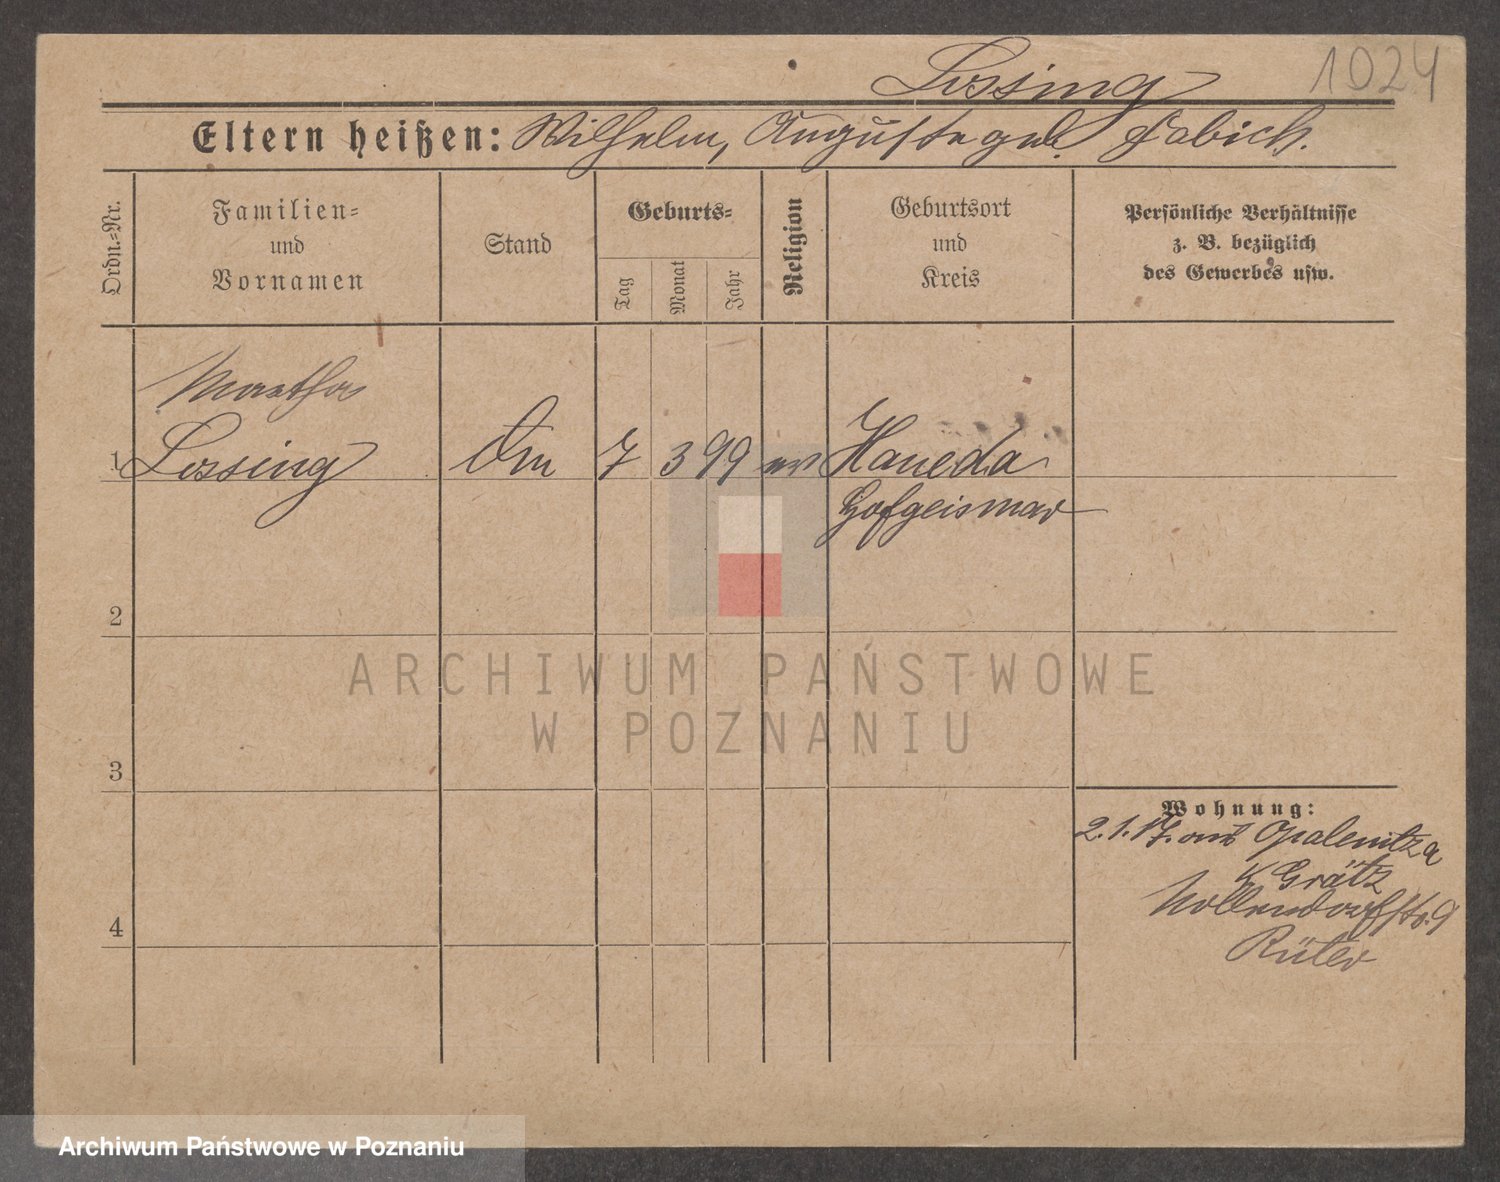 Lossing 1024
Eltern heißen: Wilhelm, Auguste geb. Fabich.
Ordn.-Nr.
Familien-
und
Vornamen
Stand
Geburts-
Tag
Monat
Jahr
Religion
Geburtsort
und
Kreis
Persönliche Verhältnisse
z. B. bezüglich
des Gewerbes usw.
Martha
1 Lossing 7 3 99 ev Haueda
Hofgeismar
2
3
4
Wohnung:
2.1.17. aus Opalenitza
K Grätz
Nollendorfstr. 9
Rüter
ARCHIWUM PAŃSTWOWE
W POZNANIU
Archiwum Państwowe w Poznaniu